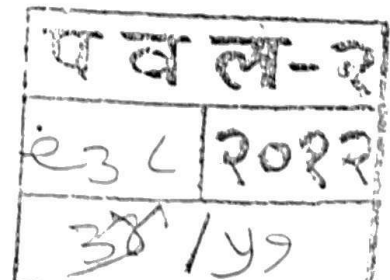 पवल-२
९३८ २०१२
३४/५१